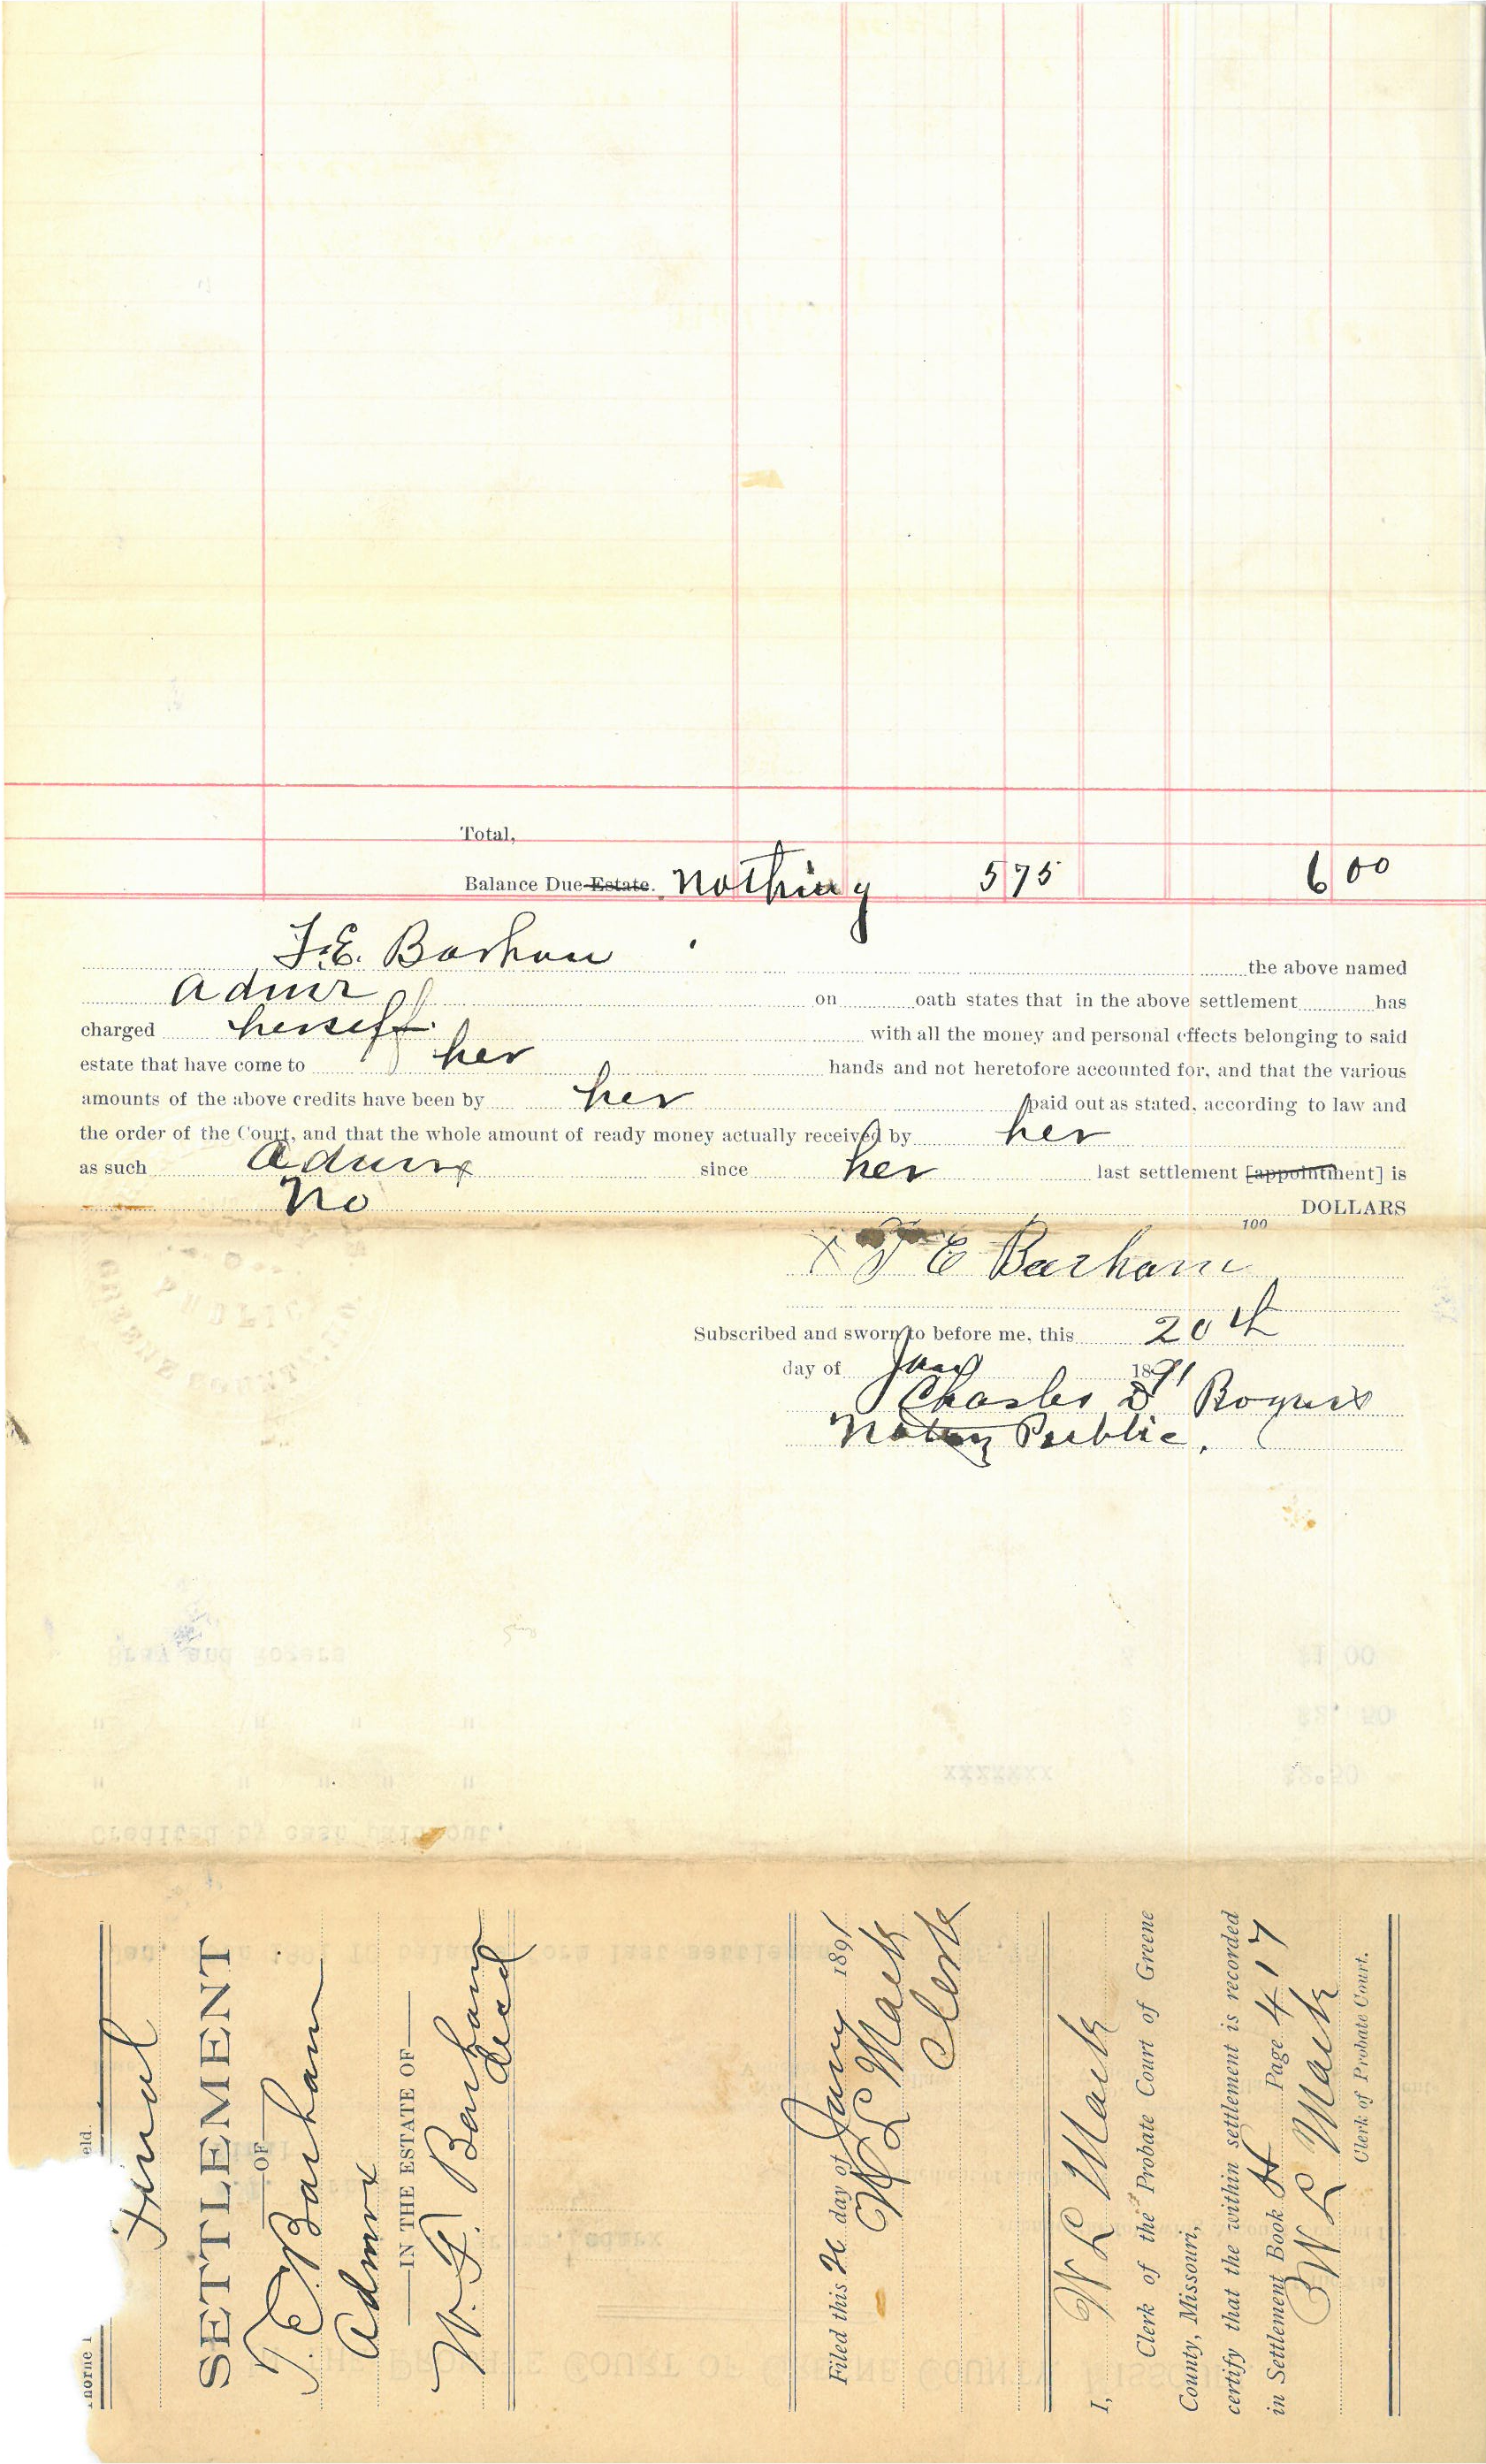 Total,
Balance Due Estate. Nothing 5 75 6 00
T. E. Barham the above named
Admr on oath states that in the above settlement has
charged herself with all the money and personal effects belonging to said
estate that have come to her hands and not heretofore accounted for, and that the various
amounts of the above credits have been by her paid out as stated, according to law and
the order of the Court, and that the whole amount of ready money actually received by her
as such Admrx since her last settlement [appointment] is
No DOLLARS
100
X T E Barham
Subscribed and sworn to before me, this 20th
day of Jany 1891
Charles D Rogers
Notary Public.
eld.
Final
SETTLEMENT
OF
T. E. Barham
Admrx
IN THE ESTATE OF
W. F. Barham
decd
Filed this day of Jany 1891
W L Mack
Clerk
I, W L Mack
Clerk of the Probate Court of Greene
County, Missouri,
certify that the within settlement is recorded
in Settlement Book H Page 417
W L Mack
Clerk of Probate Court.